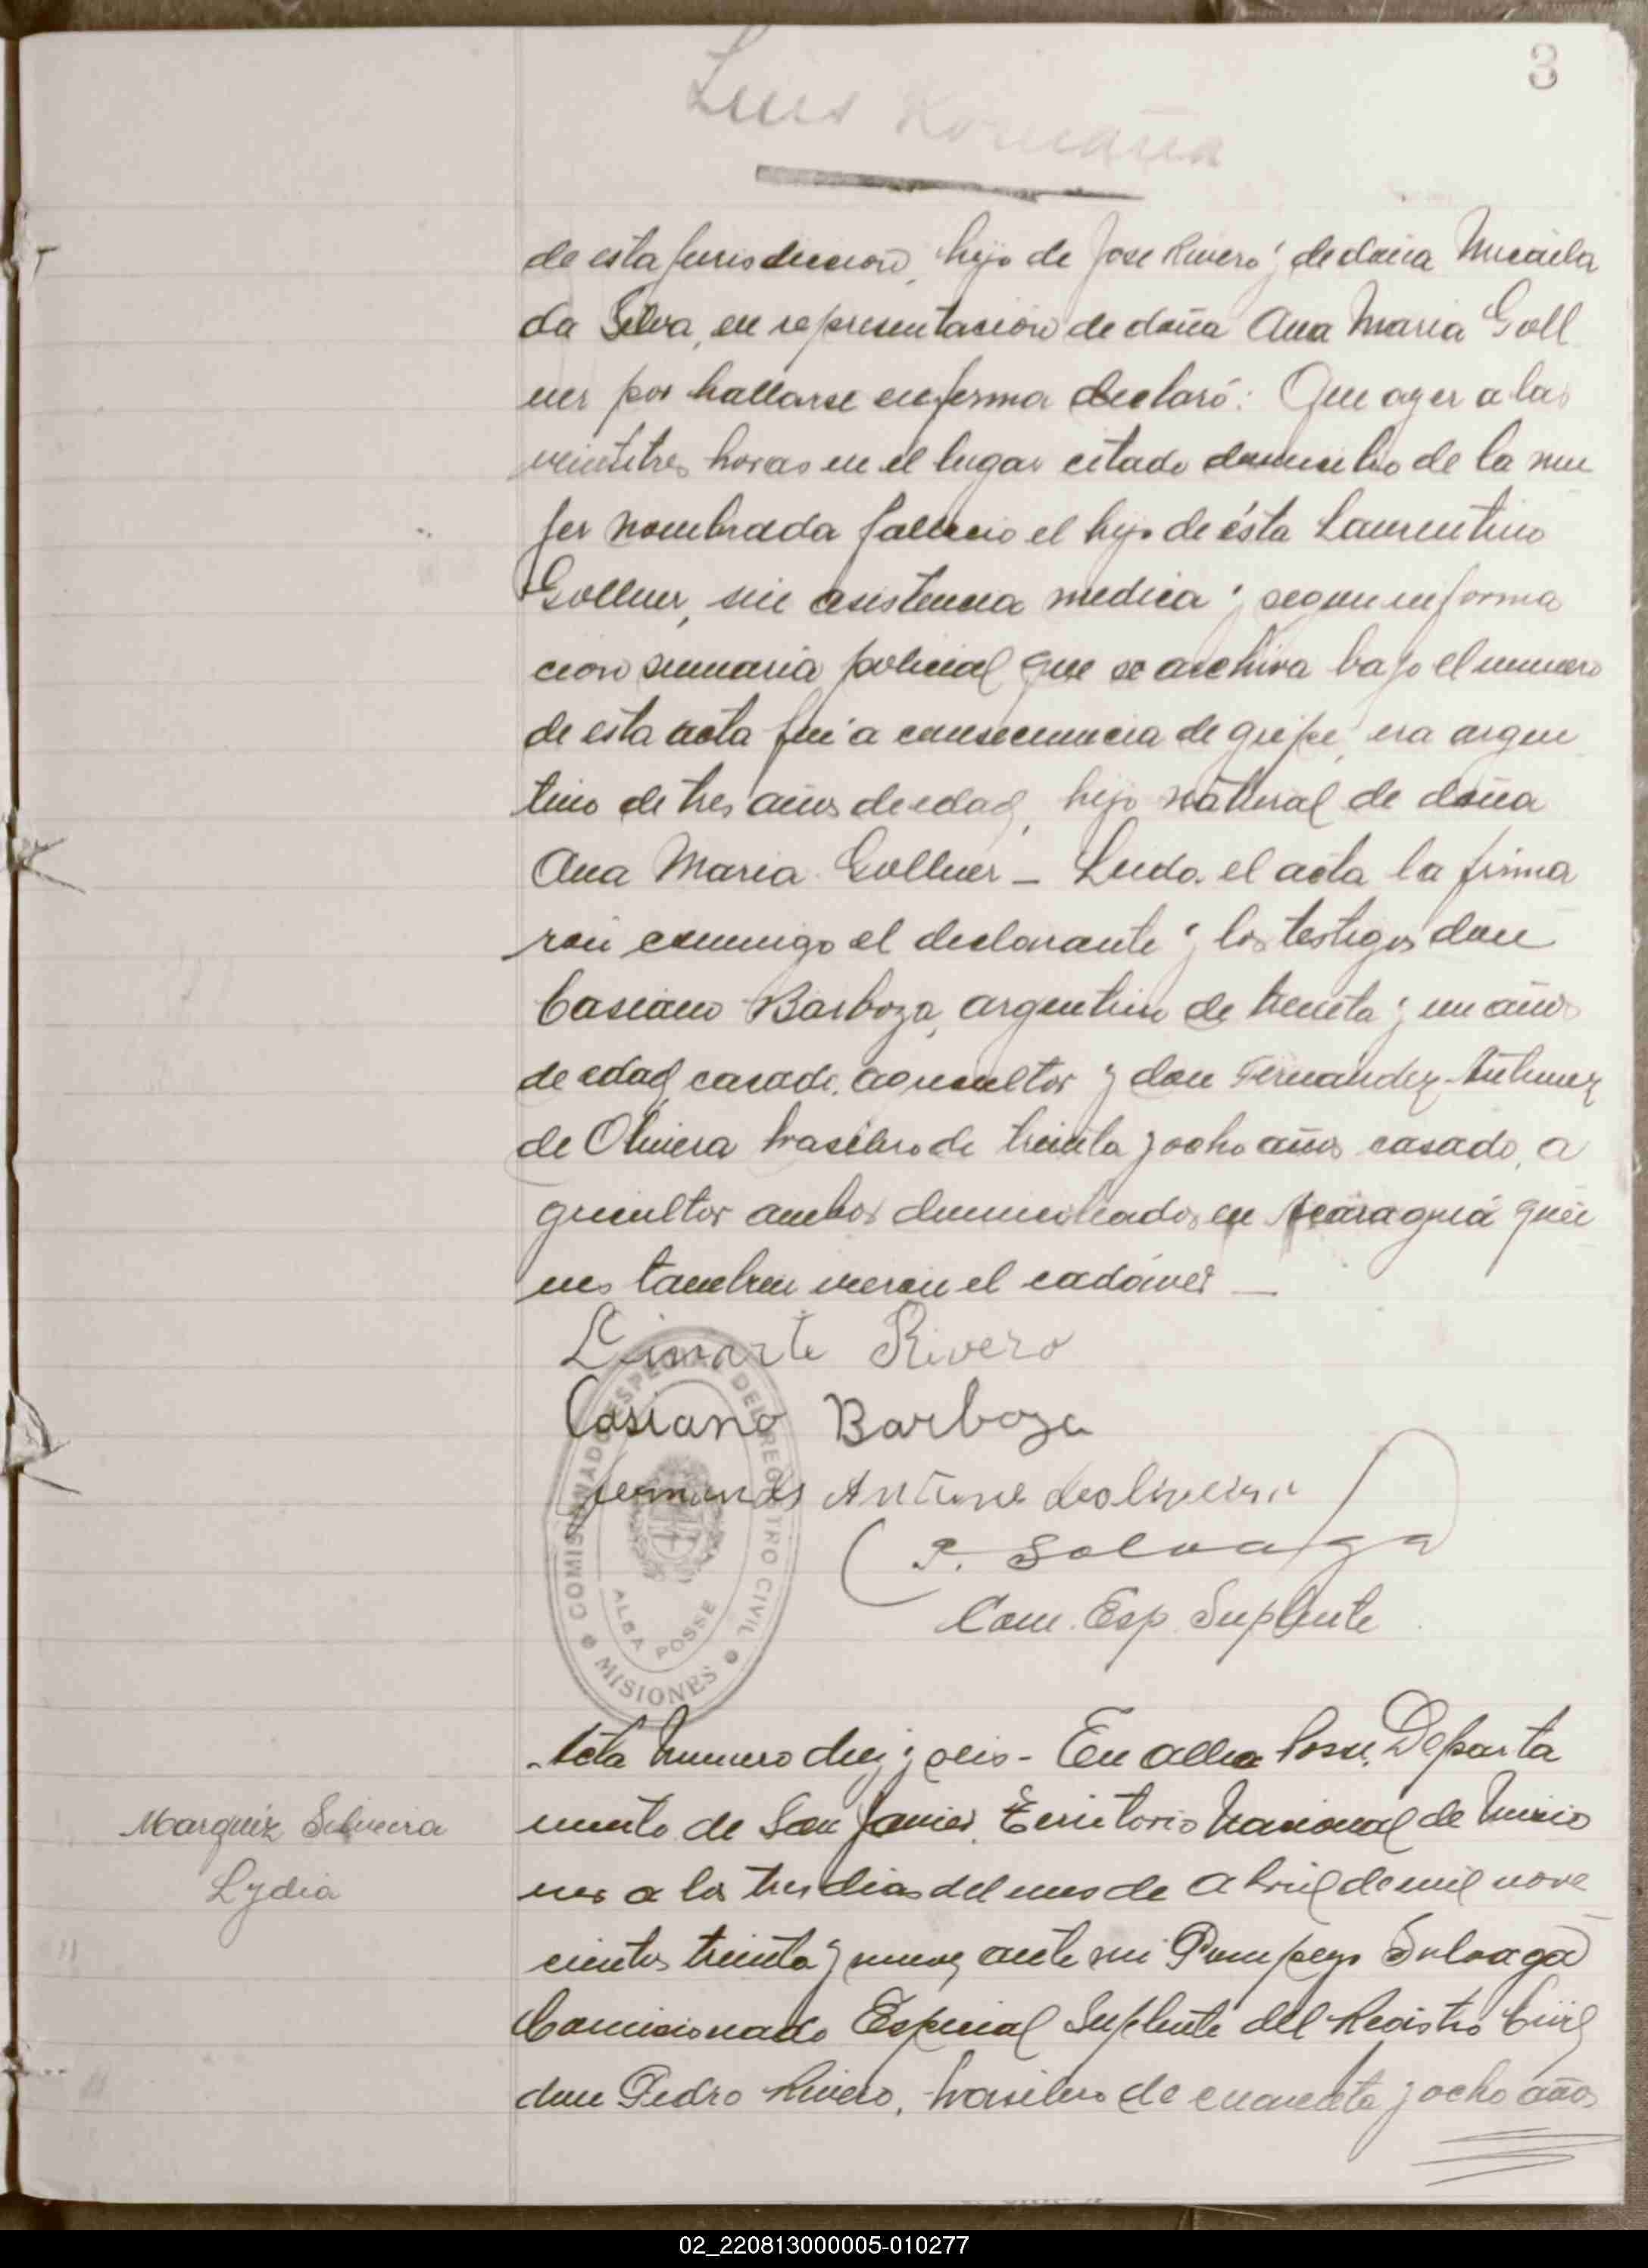 8
Luis Romaña
de esta jurisdiccion, hijo de Jose Rivero y de doña Micaila
da Silva, en representacion de doña Ana Maria Goll
ner por hallarse enferma declaró: Que ayer a las
veintitres horas en el lugar citado domicilio de la mu
jer nombrada fallecio el hijo de ésta Laurentino
Gollner, sin asistencia medica y segun informa
cion sumaria policial que se archiva bajo el numero
de esta acta fué a consecuencia de gripe, era argen
tino de tres años de edad, hijo natural de doña
Ana Maria Gollner - Leido el acta la firma
ron conmigo el declarante y los testigos don
Casiano Barboza, argentino de treinta y un años
de edad, casado, agricultor y don Fernandez Antunez
de Oliviera brasilero de treinta y ocho años casado, a
gricultor ambos domiciliados en Acaraguá quie
nes tambien vieron el cadáver —
Limarte Rivero
Casiano Barboza
Fernandes Antune deoliveira
P. Solvaga
Com. Esp. Suplente
COMISIONADO ESPECIAL DEL REGISTRO CIVIL
ALBA POSSE
MISIONES
Acta Numero diez y seis - En Alba Posse, Departa
mento de San Javier, Territorio Nacional de Misio
nes a los tres dias del mes de Abril de mil nove
Marquéz Silveira
Lydia
cientos treinta y nueve, ante mi Pompeyo Solvaga
Comisionado Especial Suplente del Registro Civil
don Pedro Rivero, brasilero de cuarenta y ocho años
02_220813000005-010277